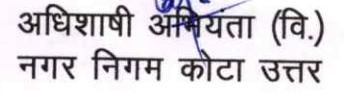 अधिशाषी अभियंता (वि.)
नगर निगम कोटा उत्तर